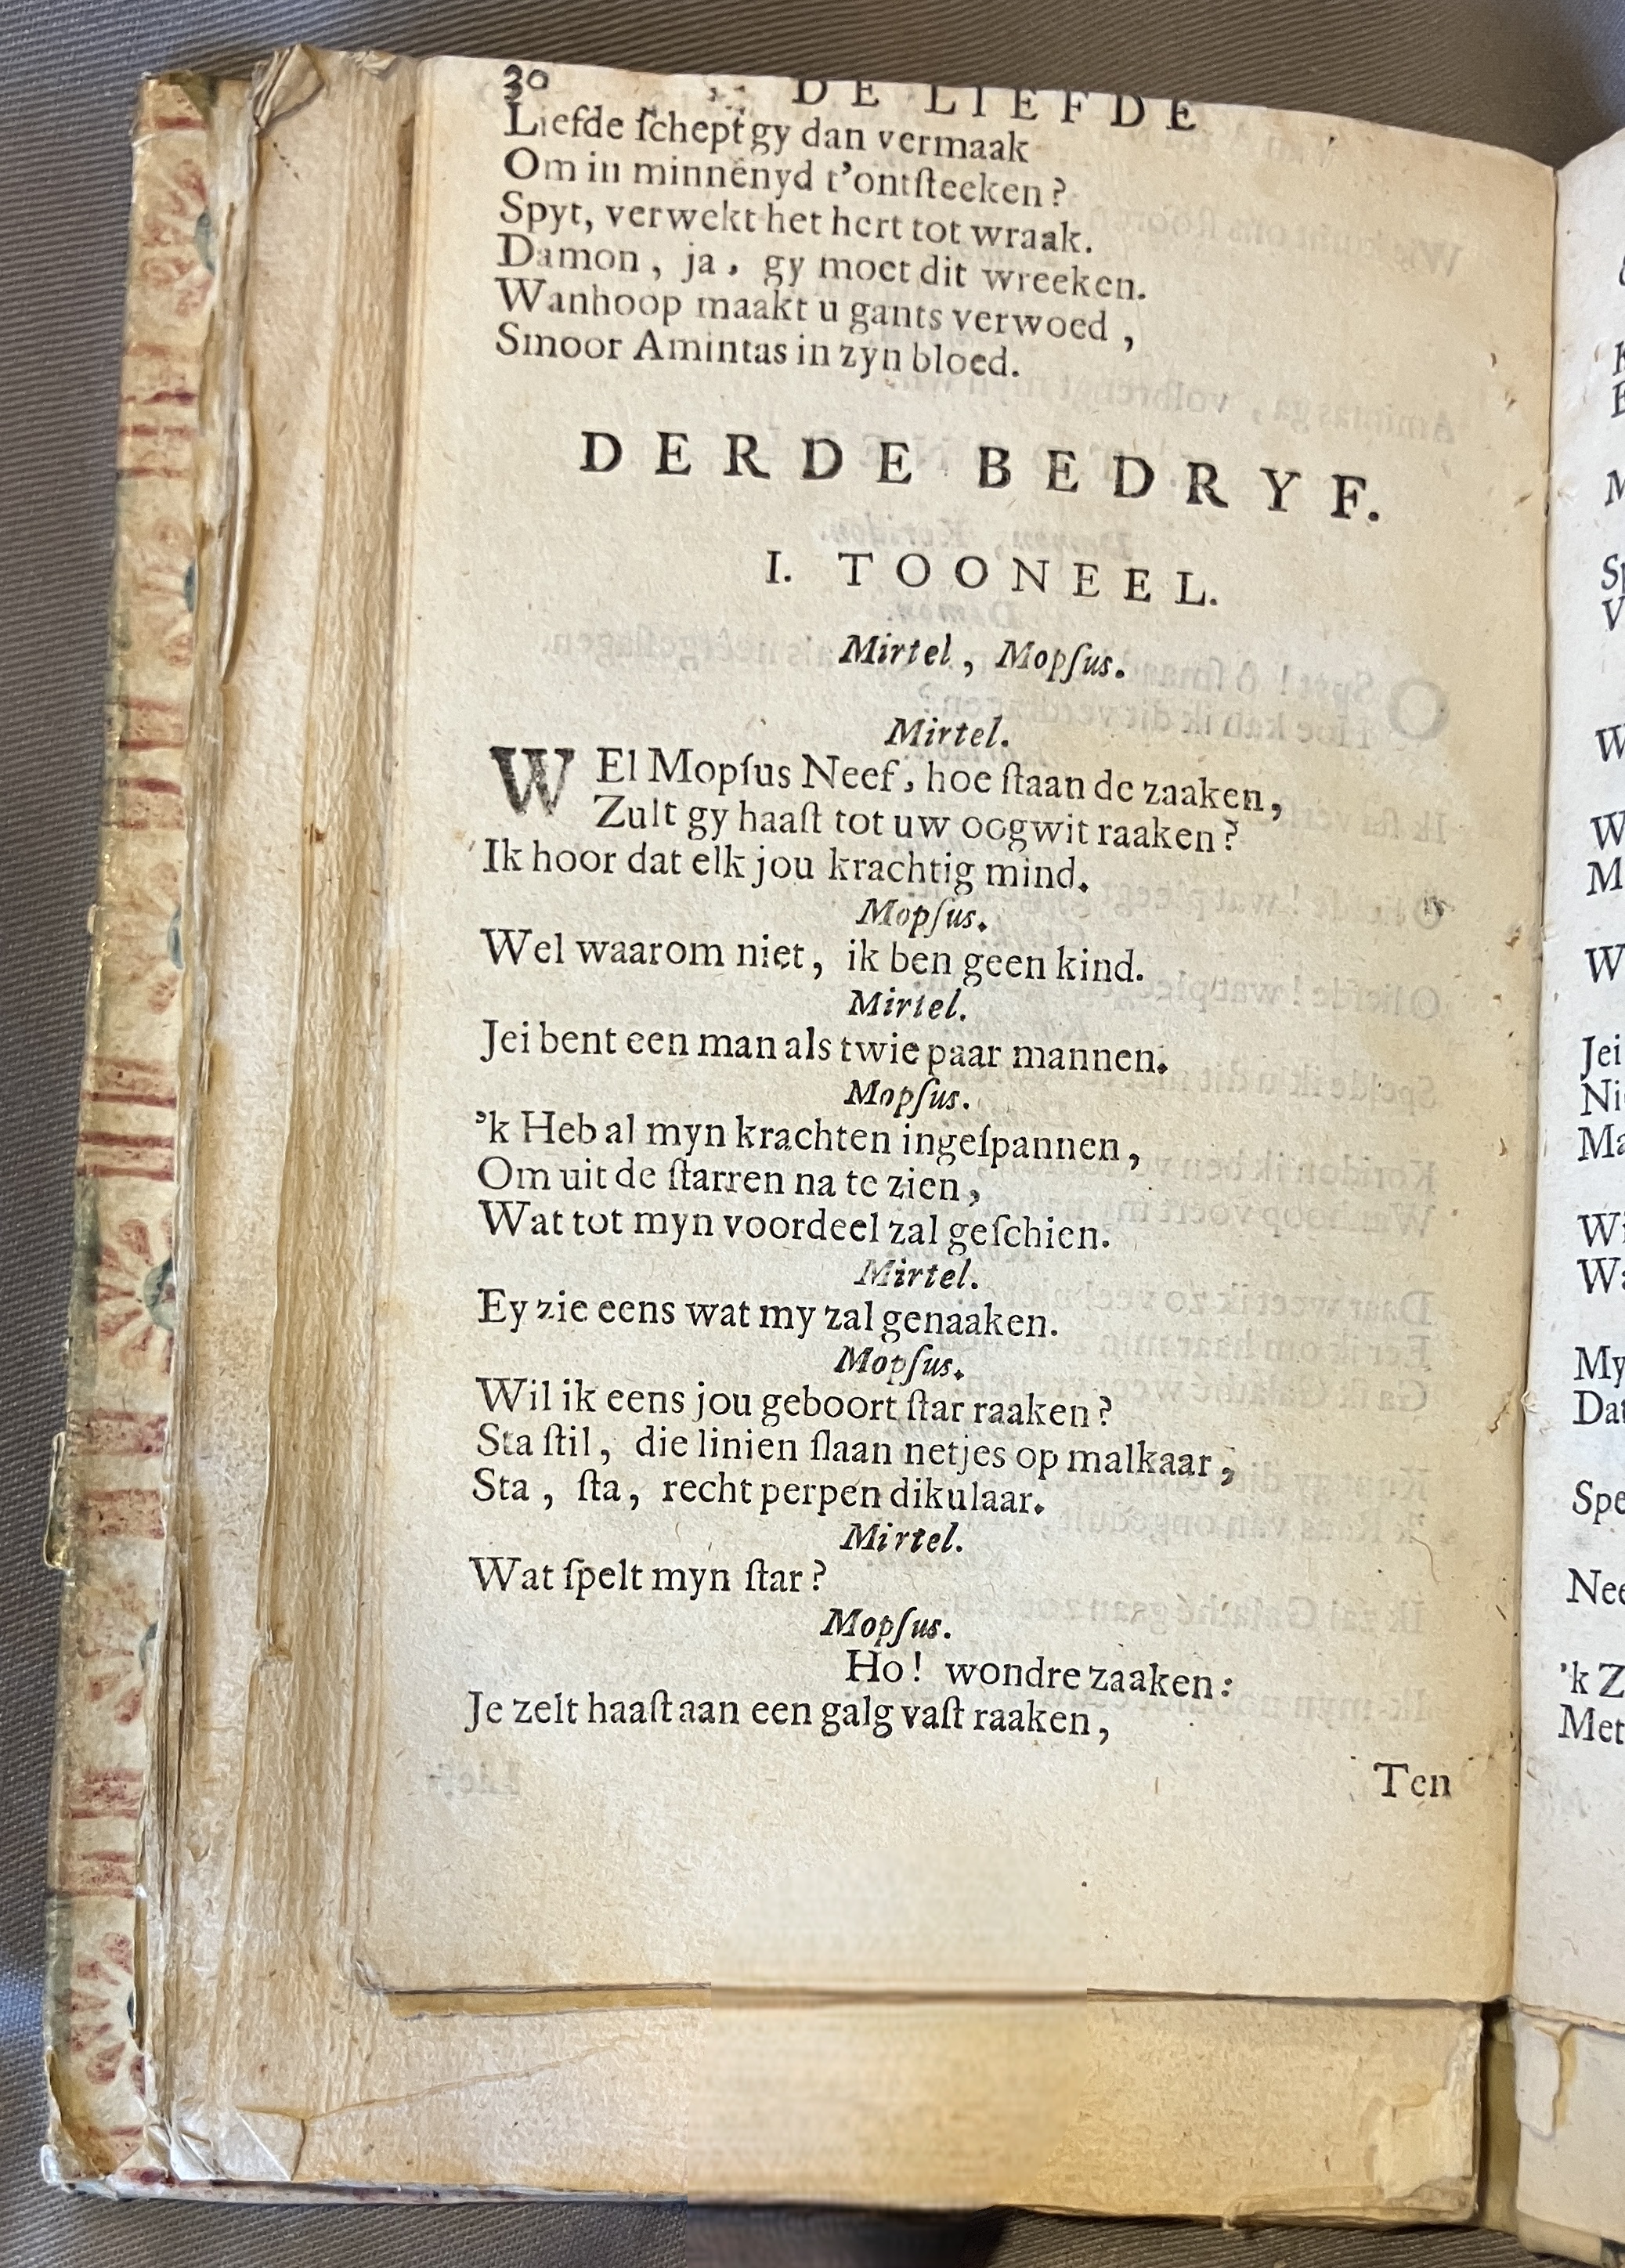 30 DE LIEFDE
Liefde ſchept gy dan vermaak
Om in minnenyd t'ontſteeken?
Spyt, verwekt het hert tot wraak.
Damon, ja, gy moet dit wreeken.
Wanhoop maakt u gants verwoed,
Smoor Amintas in zyn bloed.
DERDE BEDRYF.
I. TOONEEL.
Mirtel, Mopſus.
Mirtel.
WEl Mopſus Neef, hoe ſtaan de zaaken,
Zult gy haaſt tot uw oogwit raaken?
Ik hoor dat elk jou krachtig mind.
Mopſus.
Wel waarom niet, ik ben geen kind.
Mirtel.
Jei bent een man als twie paar mannen.
Mopſus.
'k Heb al myn krachten ingeſpannen,
Om uit de ſtarren na te zien,
Wat tot myn voordeel zal geſchien.
Mirtel.
Ey zie eens wat my zal genaaken.
Mopſus.
Wil ik eens jou geboort ſtar raaken?
Sta ſtil, die linien ſlaan netjes op malkaar,
Sta, ſta, recht perpendikulaar.
Mirtel.
Wat ſpelt myn ſtar?
Mopſus.
Ho! wondre zaaken:
Je zelt haaſt aan een galg vaſt raaken,
Ten